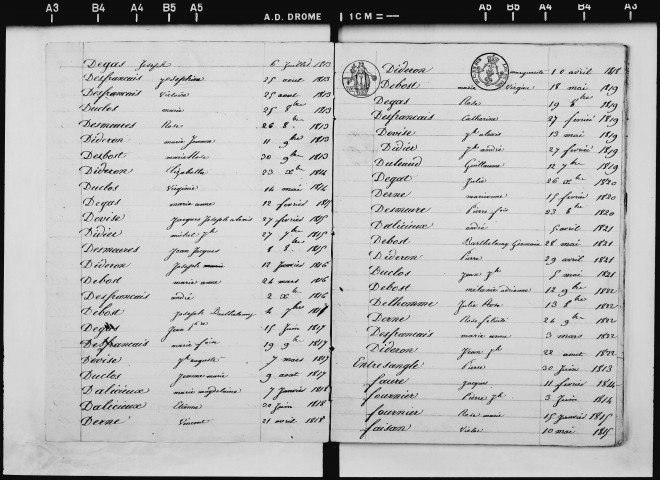 A3 B4 A4 B5 A5 A.D. DROME 1 CM = A5 B5 A4 B4 A3
Degas Joseph 6 Juillet 1813
Desfrançais Josephine 25 aout 1813
Desfrançais Victoire 25 aout 1813
Duclos marie 25 8bre 1813
Desmeures Rose 26 8bre 1813
Dideron marie Jeanne 11 9bre 1813
Desbost marie Rose 30 9bre 1813
Dideron Elizabette 23 Xbre 1814
Duclos Virginie 14 mai 1814
Degas marie anne 12 février 1815
Devise Jacques Joseph alexis 27 février 1815
Didier michel jh 27 7bre 1815
Desmeures Jean Jacques 8 8bre 1815
Dideron Joseph marie 12 Janvier 1816
Debost marie anne 24 mars 1816
Desfrançais andré 2 Xbre 1816
Debost Joseph Barthelemy 4 7bre 1817
Degas Jean 15 Juin 1817
Desfrançais marie 19 9bre 1817
Devise jh auguste 7 mars 1817
Duclos Jeanne marie 9 aout 1817
Daliciaux marie magdelaine 7 Janvier 1818
Daliciaux Etienne 20 Juin 1818
Derne Vincent 21 avril 1818
Dideron marguerite 10 avril 1818
Debost marie Virginie 18 mai 1819
Degas Rose 19 8bre 1819
Desfrançais Catherine 27 février 1819
Devise jh alexis 13 mai 1819
Didier jh andré 27 février 1819
Guillaume 12 7bre 1819
Degas Julie 26 Xbre 1820
Derne marianne 15 février 1820
Desmeure Pierre fois 23 8bre 1820
Daliciaux andré 5 avril 1821
Debost Barthelemy Germain 28 mai 1821
Dideron Pierre 29 avril 1821
Duclos Jean jh 5 mai 1821
Debost mélanie adrienne 12 9bre 1822
Delhomme Julie Rose 13 8bre 1822
Derne Rose félicité 24 9bre 1822
Desfrançais marie anne 3 mars 1822
Dideron Jean jh 22 aout 1822
Entressangle Pierre 30 Juin 1813
faure Jacques 11 février 1814
fournier Pierre jh 3 Juin 1814
fournier Rose marie 15 Janvier 1815
faisan Victor 10 mai 1815